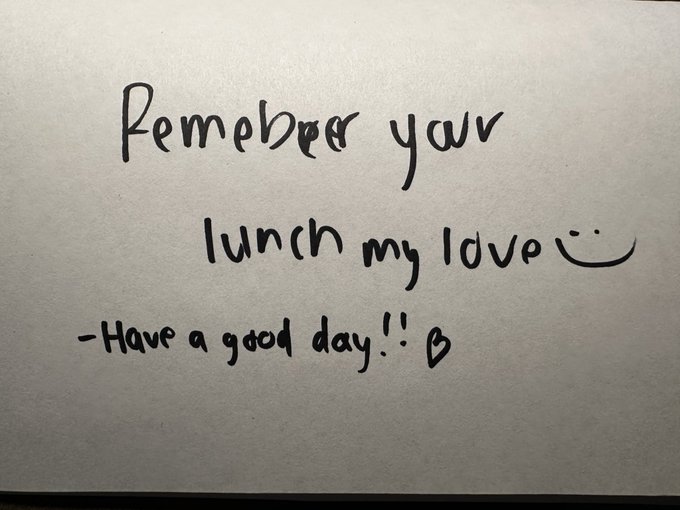 Remeber your
lunch my love
-Have a good day!!